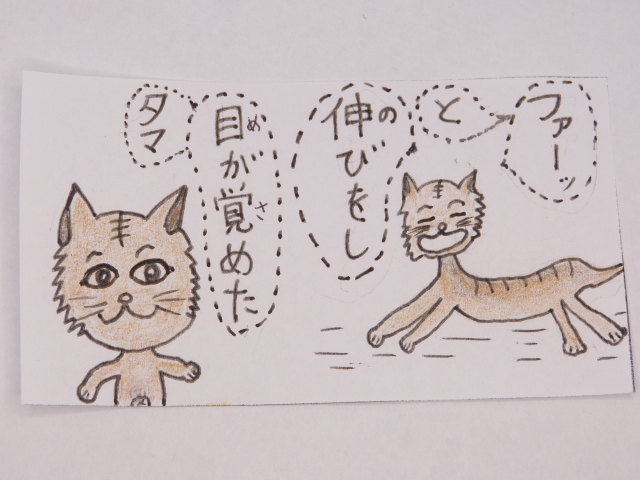 ファーッ
と
伸びをし
目が覚めた
タマ